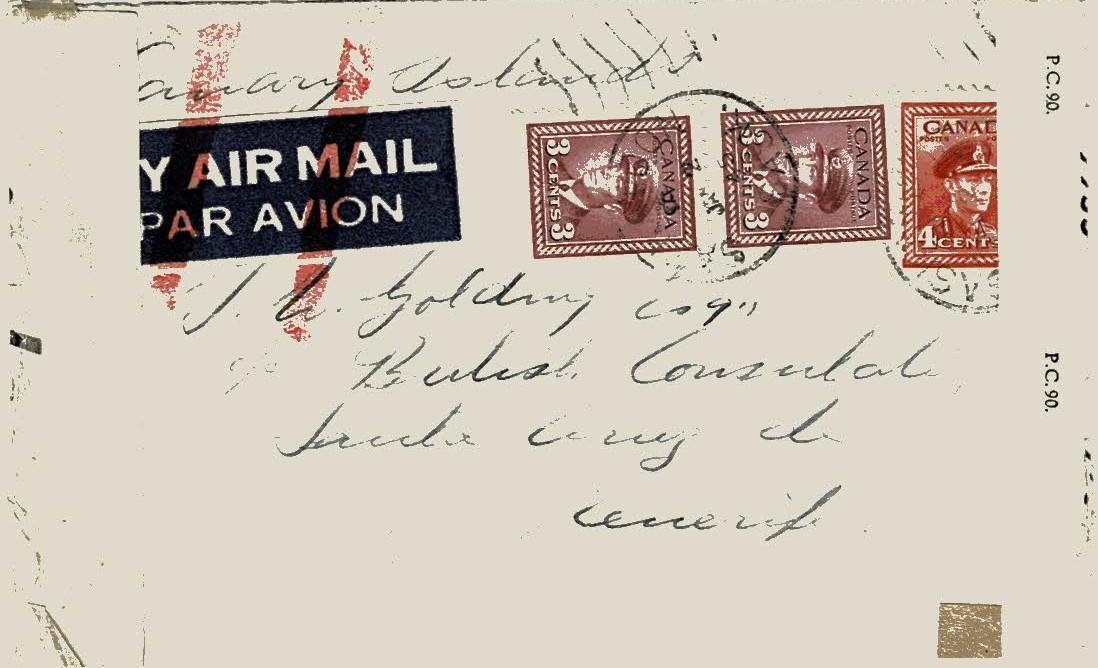 Canary Islands
Y AIR MAIL
PAR AVION
3 CENTS 3
CANADA
3 CENTS 3
CANADA
CANAD
4 CENTS
P.C. 90.
P.C. 90.
J. W. Golding Esq"
c/o British Consulate,
Santa Cruz de
Tenerif